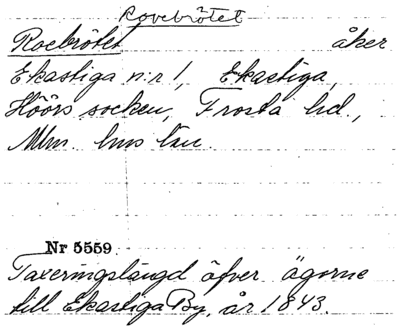 Rovebrötet
Roebrötet åker
Ekastiga n:r 1, Ekastiga,
Höörs socken, Frosta hd.,
Mlm. hus län.
Nr 5559
Taxeringslängd öfver ägorne
till Ekastiga By, år 1843.